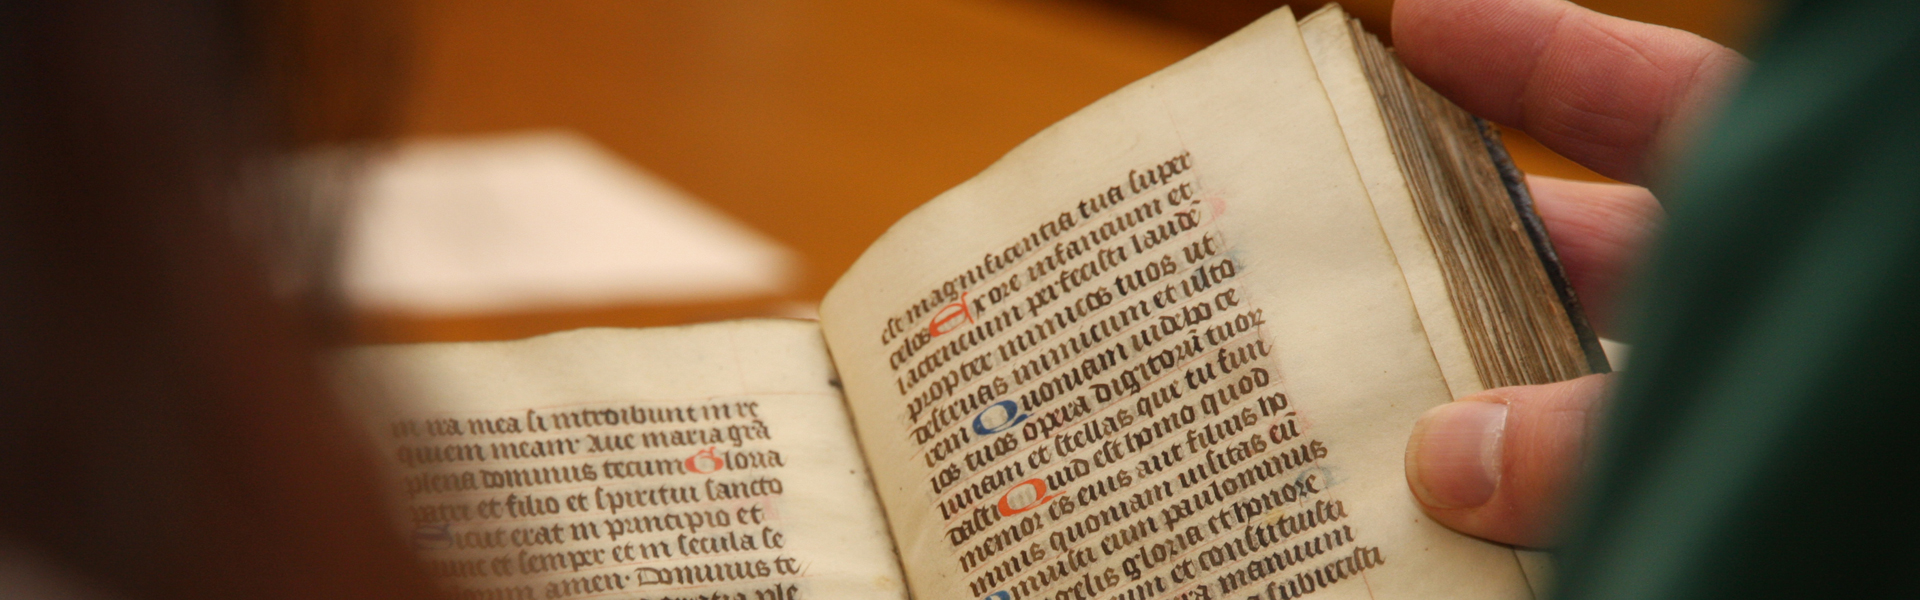 ira mea si introibunt in re
quiem meam· Aue maria grā
plena dominus tecum Gloria
patri et filio et spiritui sancto
Sicut erat in principio et
nunc et semper et in secula se
amen· Dominus te
est magnificentia tua super
celos Ex ore infancium et
lactencium perfecisti laudē
propter inimicos tuos ut
destruas inimicum et ulto
rem Quoniam uidebo ce
los tuos opera digitorū tuor
lunam et stellas que tu fun
dasti Quid est homo quod
memor es eius aut filius ho
minis quoniam uisitas eū
Minuisti eum paulominus
angelis gloria et honore
et constituisti
manuum
subiecisti